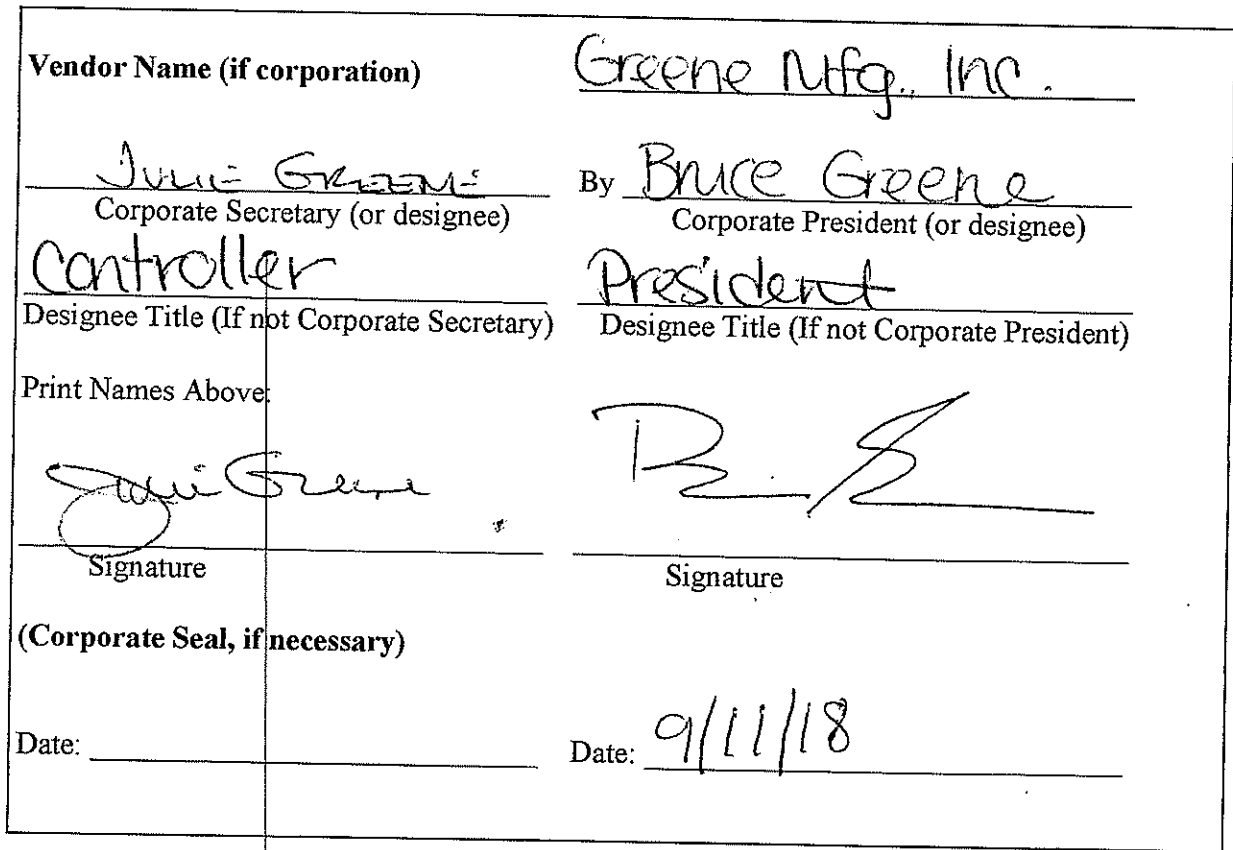 Vendor Name (if corporation) Greene Mfg., Inc.
JULIE GREENE By Bruce Greene
Corporate Secretary (or designee) Corporate President (or designee)
Controller President
Designee Title (If not Corporate Secretary) Designee Title (If not Corporate President)
Print Names Above:
Julie Greene
Signature Signature
(Corporate Seal, if necessary)
Date: Date: 9/11/18